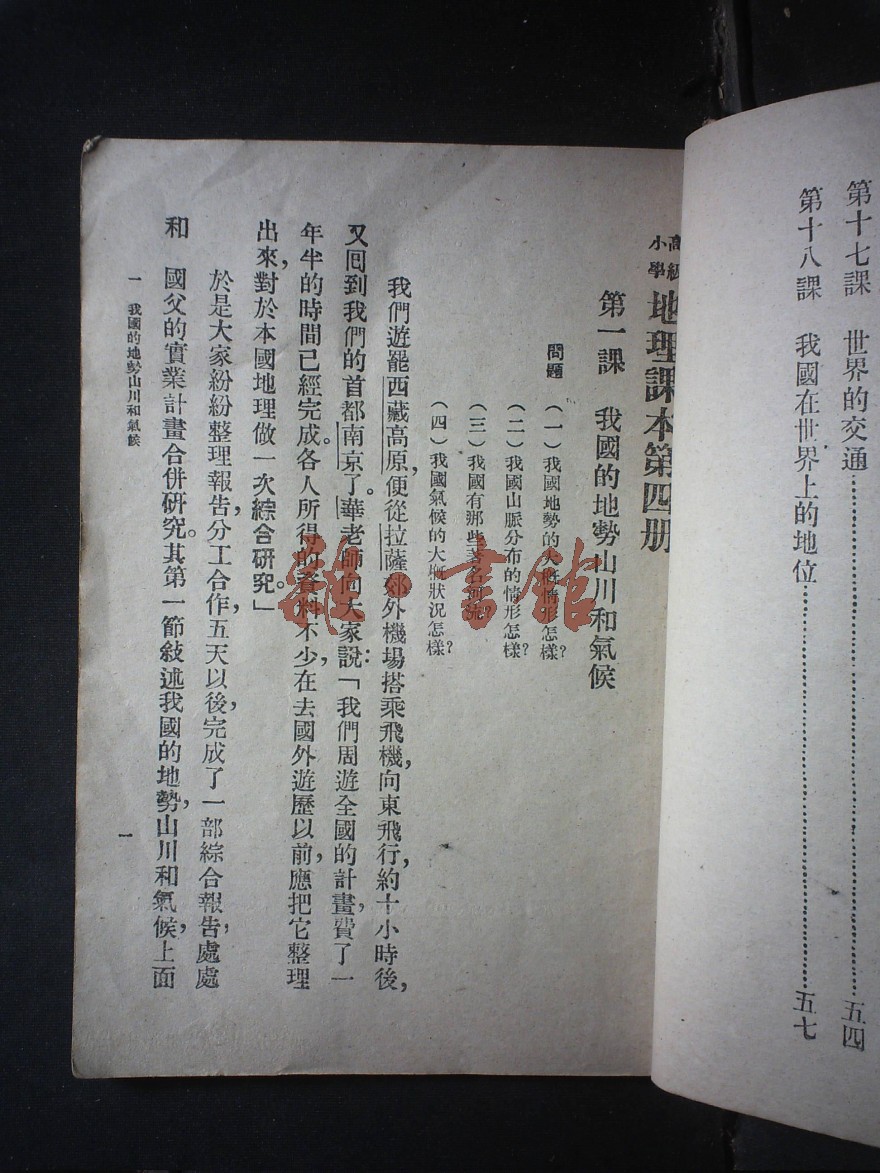 第十七課　世界的交通……五四
第十八課　我國在世界上的地位……五七
高級小學地理課本第四册
第一課　我國的地勢山川和氣候
問題　（一）我國地勢的大概情形怎樣？
（二）我國山脈分布的情形怎樣？
（三）我國有那些著名河流？
（四）我國氣候的大概狀況怎樣？
我們遊罷西藏高原，便從拉薩郊外機場搭乘飛機，向東飛行，約十小時後，
又囘到我們的首都南京了。華老師向大家說：「我們周遊全國的計畫，費了一
年半的時間已經完成。各人所得的資料不少，在去國外遊歷以前，應把它整理
出來，對於本國地理做一次綜合研究。」
於是大家紛紛整理報告，分工合作，五天以後，完成了一部綜合報告，處處
和　國父的實業計畫合併研究。其第一節敍述我國的地勢，山川和氣候，上面
一　我國的地勢山川和氣候
一
雜·書館